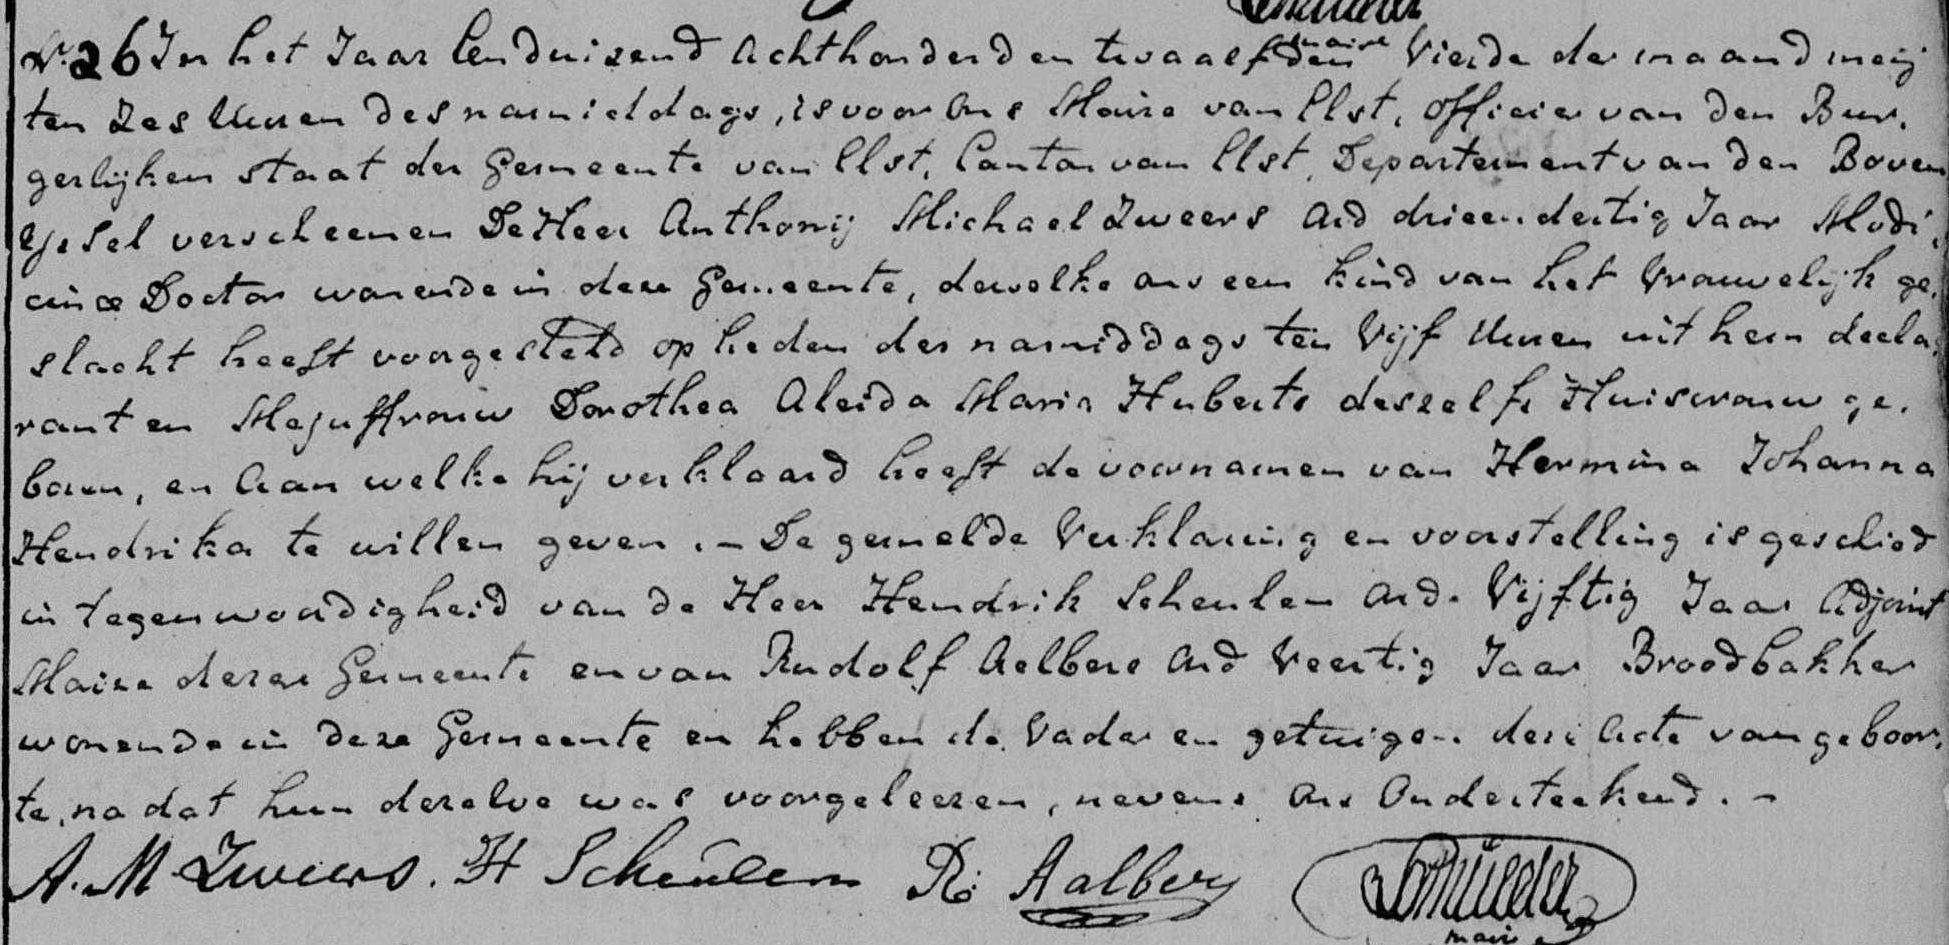 Schuller
maire
Nr. 26 In het Jaar Eenduizend Achthonderd en twaalf den Vierde der maand meij
ten Zes Uuren des namiddags, is voor Ons Maire van Elst, Officier van den Bur,
gerlijken staat der Gemeente van Elst, Canton van Elst, Departement van den Boven
Yssel verscheenen De Heer Anthonij Michael Zweers oud drieendertig Jaar Medi,
cinæ Doctor wonende in deze Gemeente, dewelke ons een kind van het Vrouwelijk ge,
slacht heeft voorgesteld op heden des namiddags ten Vijf Uuren uit hem decla,
rant en Mejuffrouw Dorothea Aleida Maria Huberts deszelfs Huisvrouw ge,
boren, en Aan welke hij verklaard heeft de voornamen van Hermina Johanna
Hendrika te willen geven. – De gemelde Verklaring en voorstelling is geschied
in tegenwoordigheid van de Heer Hendrik Scheulen oud Vijftig Jaar Adjoint
Maire dezer Gemeente en van Rudolf Aelbers oud Veertig Jaar Broodbakker
wonende in deze Gemeente en hebben de Vader en getuigen deze Acte van geboor,
te, na dat hun dezelve was voorgeleezen, nevens Ons Onderteekend. –
A. M Zweers. H Scheulen R: Aalbers
maire